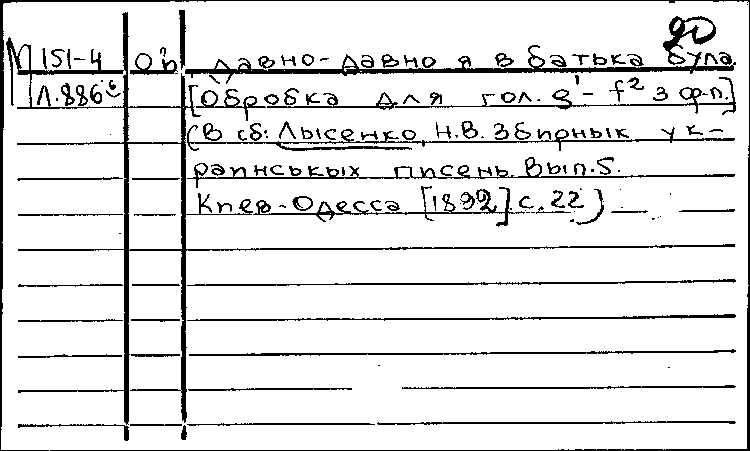 90
М 151-4 Об Давно-давно я в батька була.
Л.886 [Обробка для гол. g¹ - f² з ф-п.]
(В сб: Лысенко, Н.В. Збирнык ук-
раинськых писень. Вып. 5.
Киев-Одесса [1892] с. 22)